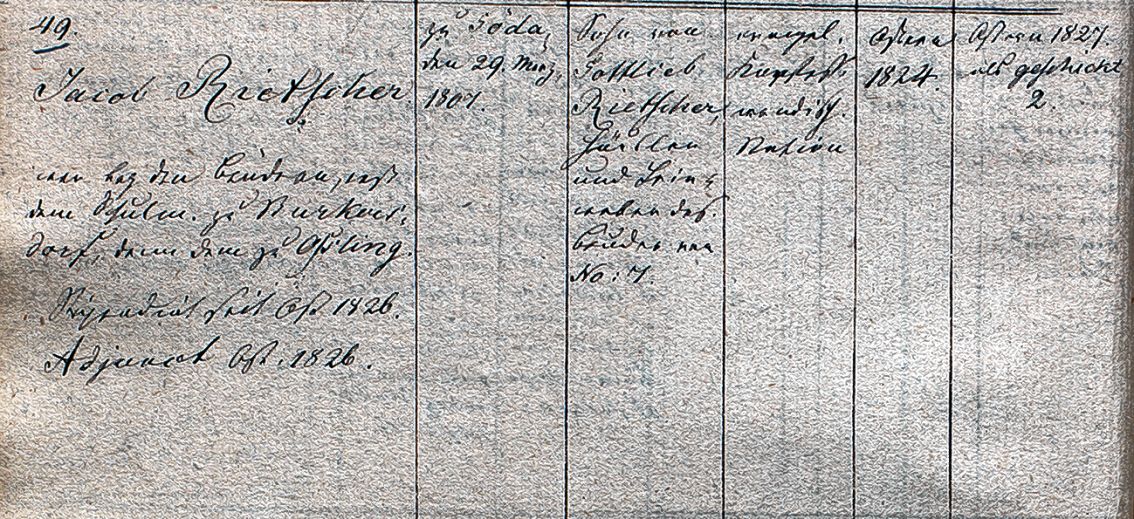 49.
Jacob Rietscher.
war bey den Brüdern, erst
dem Schulm. zu Burkers¬
dorf, dann dem zu Ostling.
Stipendiat seit Ost. 1826.
Adjunct Ost. 1826.
zu Göda,
den 29. März
1807.
Sohn von
Gottlieb
Rietscher,
Häusler
und Lein¬
weber das.
Bruder von
No: 7.
evangel.
wendisch.
Nation
Ostern
1824.
Ostern 1827.
als geschickt
2.